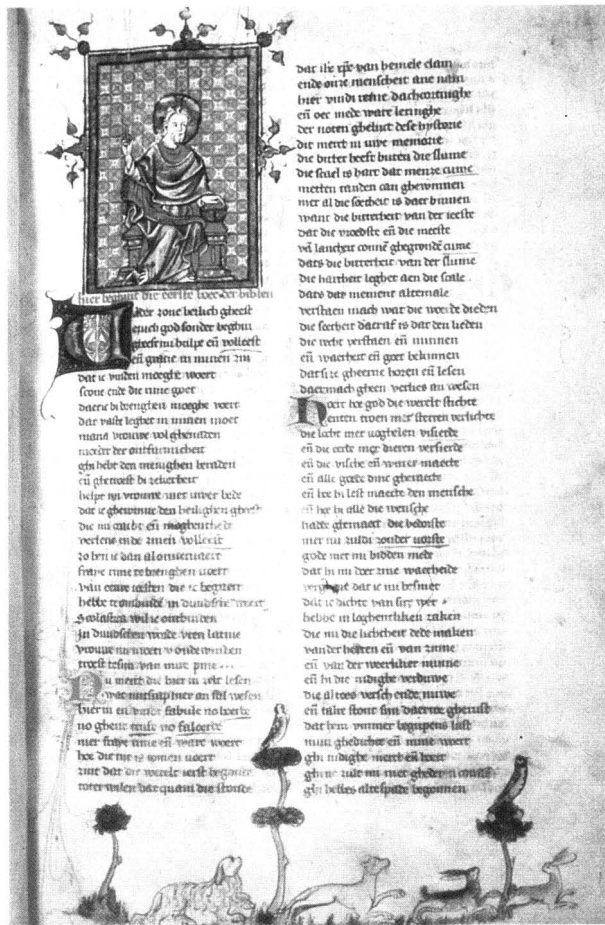 hier beghint die eerste boec der biblen
Vader zone heilich gheest
enich god sonder beghin
gheeft mi hulpe en̄ volleest
en̄ gracie in minen zin
dat ic vinden moeghe woert
scone ende die mine goet
daer ic bi brenghen moeghe voert
dat vaste leghet in minen moet
maria vrouwe vol ghenaden
moeder der ontfarmicheit
ghi hebt den menighen beraden
en̄ ghetroest bi zekerheit
helpt mi vrouwe met uwer bede
dat ic ghewinne den heilighen gheest
die mi cracht en̄ moghenthede
verlene ende zinen volleest
zo ben ic dan al onvervaert
fraye rime te brenghen voert
van eenre ieesten die ic begaert
hebbe tontbinde in duudsche woert
Scolastica wil ic ontbinden
in duudschen worde uten latine
vrouwe nu moet ons onderwinden
troest te sijn van mire pine
Nu merct die hier in zelt lesen
wat nutscap hier an sal wesen
hier in en vint fabule no boerte
no ghene truffe no faloerde
mer fraye rime en̄ ware woert
hoe die tijt is comen voert
zint dat die werelt ierst began
toter wilen dat quam die stonde
dat ihs xp̄c van hemele clam
ende onze menscheit ane nam
hier vindi tekene dachcortinghe
en̄ oec mede ware leringhe
der noten ghelijct dese hystorie
dit merct in uwe memorie
die bitter heeft buten die slume
die scael is hart dat menze cume
metten tanden can ghewinnen
mer al die soetheit is daer binnen
want die bitterheit van der ieeste
dat die vroedste en̄ die meeste
vā lancheit conne ghegronde cume
dats die bitterheit van der slume
die hartheit leghet aen die scale
dats dat mement altemale
verstaen mach wat die woerde dieden
die soetheit daeraf is dat den lieden
die recht verstaen en̄ minnen
en̄ waerheit en̄ goet bekinnen
dat size gheerne horen en̄ lesen
daer mach gheen verlies an wesen
Hoert hoe god die werelt stichte
enten troen met sterren verlichte
die locht met voghelen visierde
en̄ die eerde met dieren versierde
en̄ die vische en̄ water maecte
en̄ alle goede dinc gheraecte
en̄ hoe hi lest maecte den mensche
en̄ hoe hi alle die wensche
hadde ghemaect die bedorste
mer nu zuldi zonder vorste
gode met mi bidden mede
dat hi mi doer zine waerheide
vergheve dat ic mi besmet
dat ic dichte
hebbe in loghenthliken zaken
die mi die lichtheit dede maken
van der herten en̄ van zinne
en̄ van der weerliker minne
en̄ hi die nidighe verduwe
die altoes versch ende nuwe
en̄ talre stont sijn daer toe gherust
dat hem ummer begripens lust
mijn ghedichte en̄ mine woert
ghi nidighe merct en̄ hoert
ghine zult mi niet
ghi hebbes alte spade begonnen